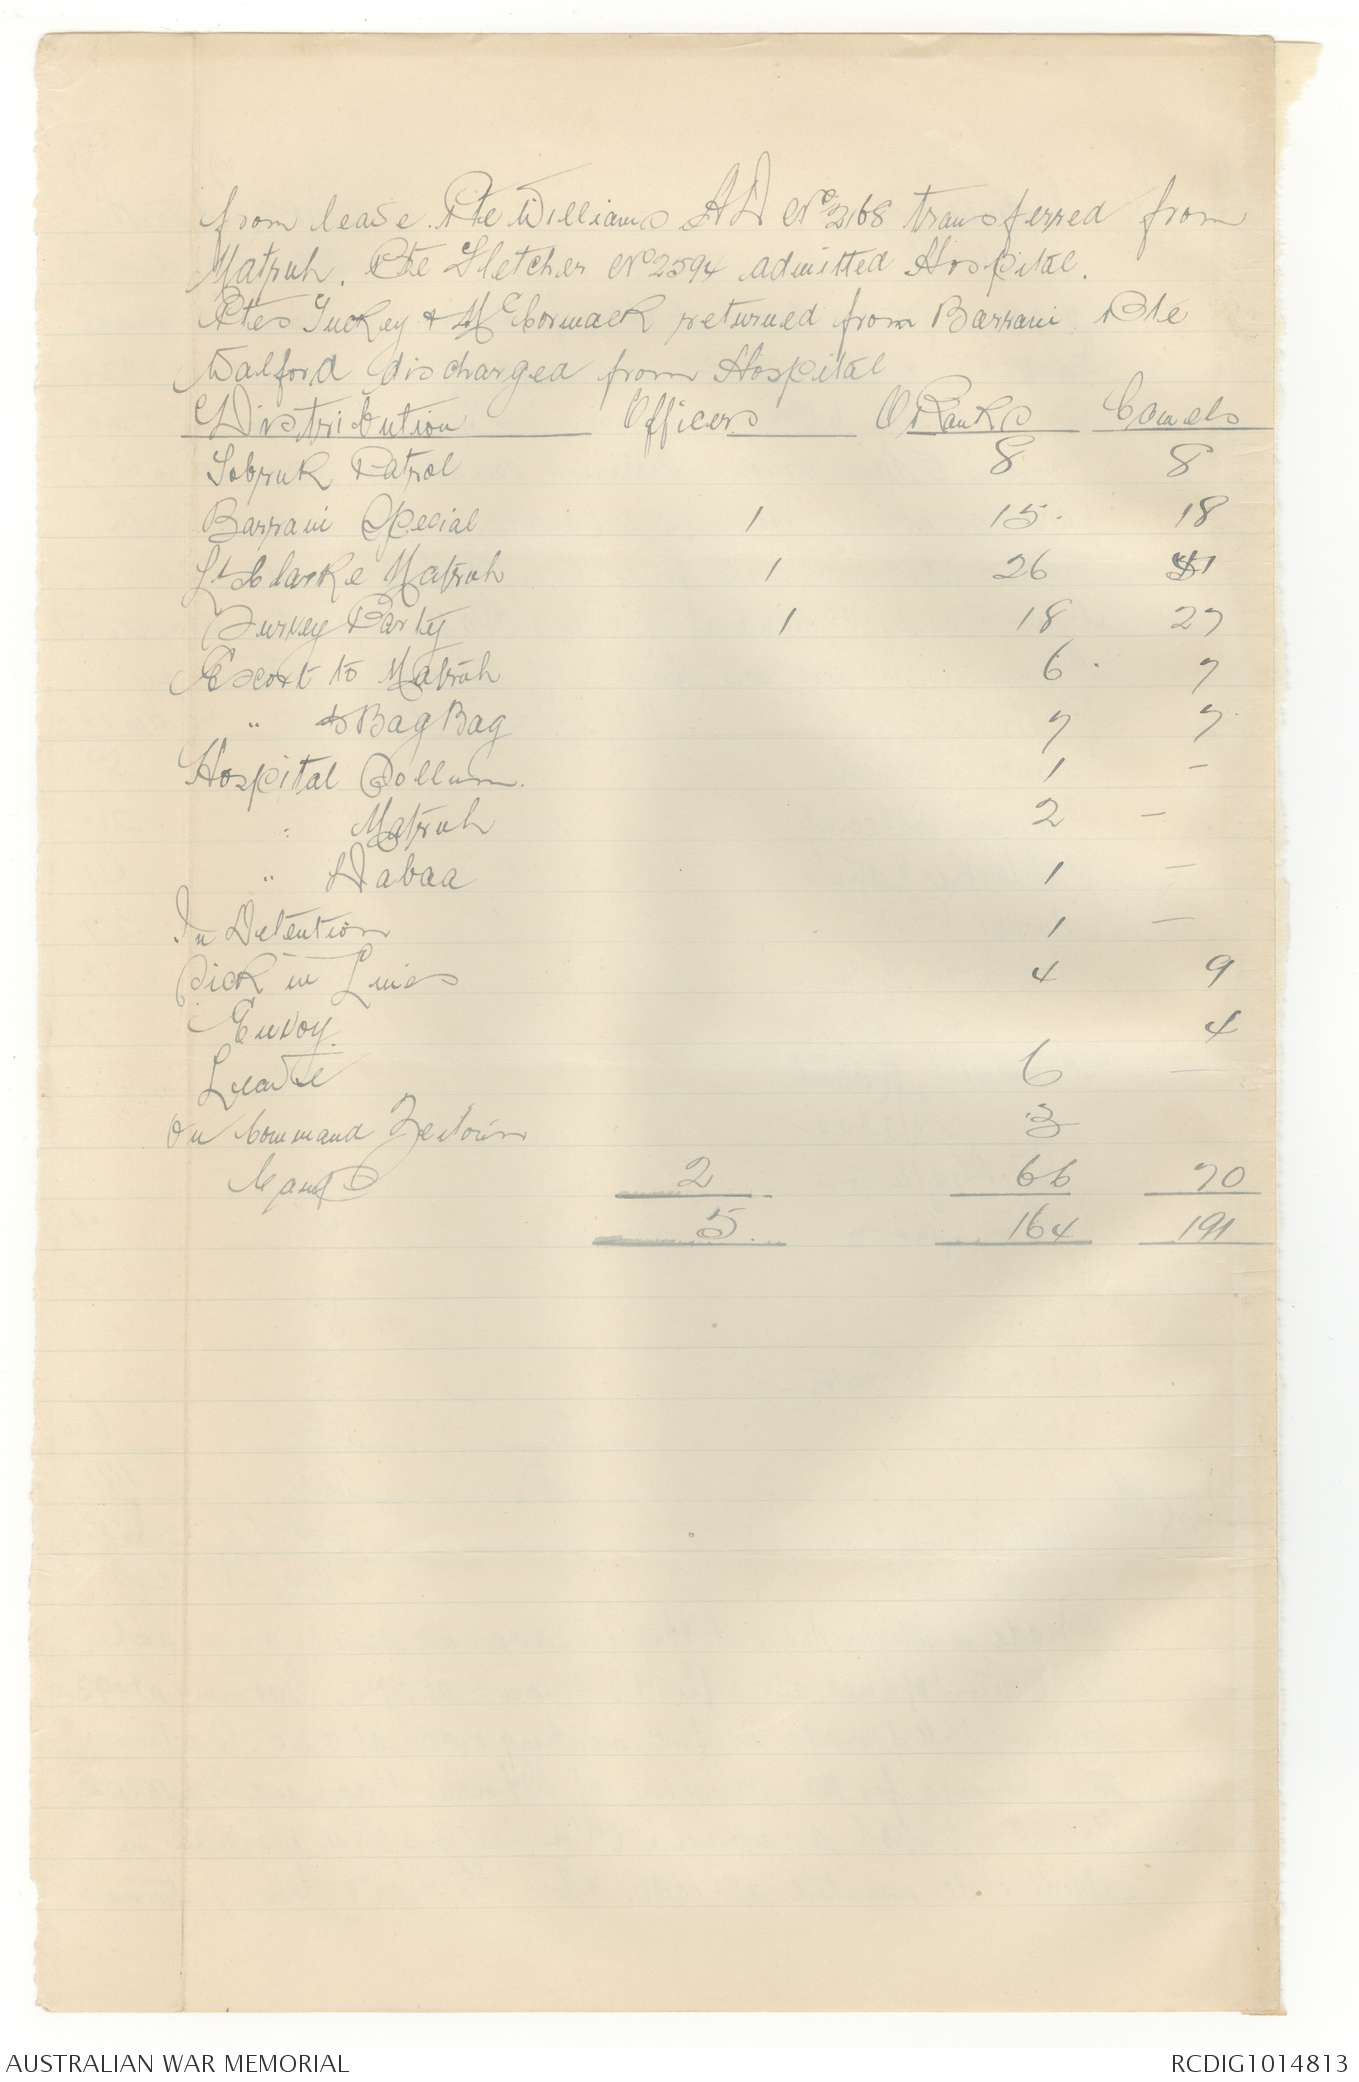 from leave. Pte Williams A D No 2168 transferred from
Matruh. Pte Fletcher No 2594 admitted Hospital.
Ptes Tuckey & McCormack returned from Barrani Pte
Walford discharged from Hospital
Distribution Officers O Ranks Camels
Tobruk Patrol 8 8
Barrani Special 1 15. 18
Lt Clarke Matruh 1 26 41
Survey Party 1 18 27
Escort to Matruh 6 . 7
" to BagBag 7 7.
Hospital Sollum. 1 -
" Matruh 2 -
" Dabaa 1 -
In Detention 1 -
Sick in Lines 4 9
Envoy. 4
Leave 6 -
On Command Zeitoun 3
Camp 2 66 70
5 164 191
AUSTRALIAN WAR MEMORIAL RCDIG1014813